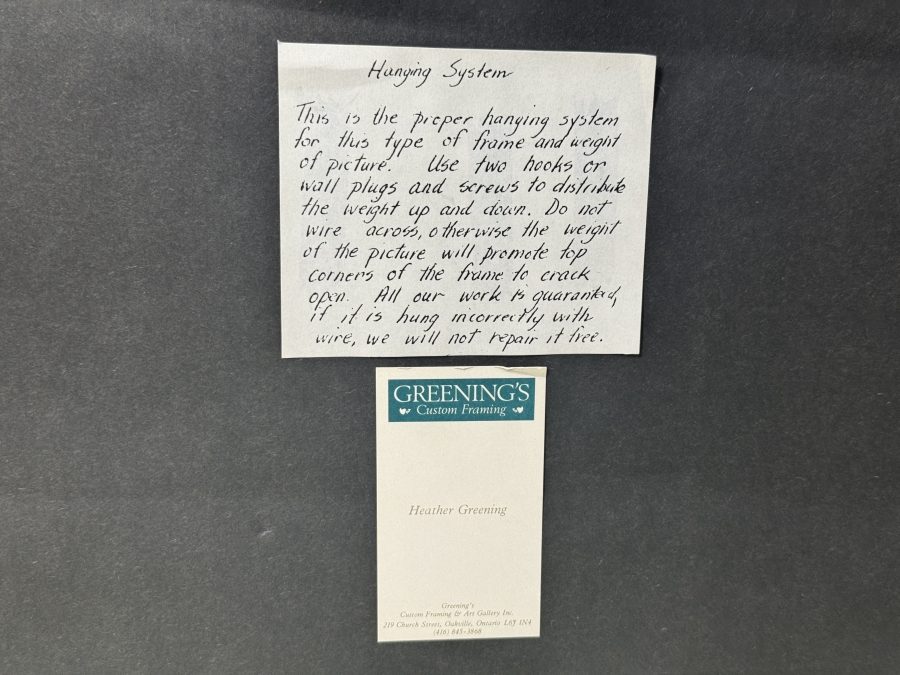 Hanging System
This is the proper hanging system
for this type of frame and weight
of picture. Use two hooks or
wall plugs and screws to distribute
the weight up and down. Do not
wire across, otherwise the weight
of the picture will promote top
corners of the frame to crack
open. All our work is guaranteed,
if it is hung incorrectly with
wire, we will not repair it free.
GREENING'S
Custom Framing
Heather Greening
Greening's
Custom Framing & Art Gallery Inc.
219 Church Street, Oakville, Ontario L6J 1N4
(416) 845-3868